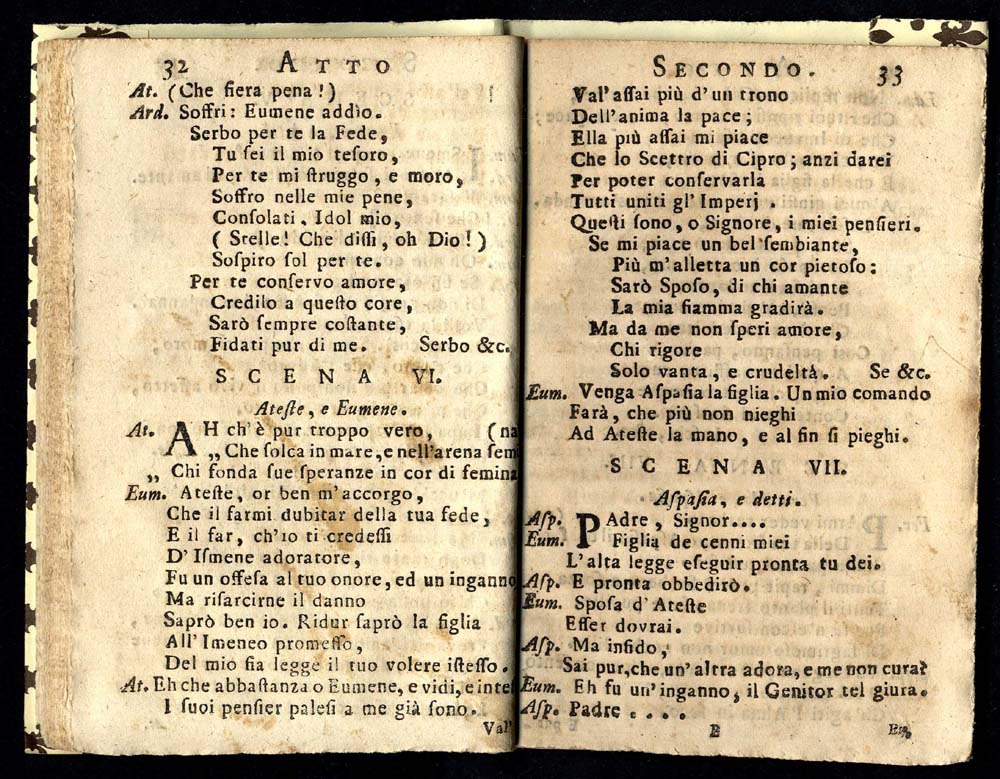 32 ATTO
At. (Che fiera pena!)
Ard. Soffri: Eumene addìo.
Serbo per te la Fede,
Tu ſei il mio teſoro,
Per te mi ſtruggo, e moro,
Soffro nelle mie pene,
Conſolati, Idol mio,
( Stelle! Che diſſi, oh Dio!)
Soſpiro ſol per te.
Per te conſervo amore,
Credilo a queſto core,
Sarò ſempre coſtante,
Fidati pur di me. Serbo &c.
SCENA VI.
Ateſte, e Eumene.
At. AH ch'è pur troppo vero, (na
„ Che ſolca in mare, e nell'arena ſem
„ Chi fonda ſue ſperanze in cor di femina
Eum. Ateſte, or ben m'accorgo,
Che il farmi dubitar della tua fede,
E il far, ch'io ti credeſſi
D'Iſmene adoratore,
Fu un offeſa al tuo onore, ed un inganno
Ma riſarcirne il danno
Saprò ben io. Ridur ſaprò la figlia
All'Imeneo promeſſo,
Del mio ſia legge il tuo volere iſteſſo.
At. Eh che abbaſtanza o Eumene, e vidi, e inte
I ſuoi penſier paleſi a me già ſono.
Val'
SECONDO. 33
Val'aſſai più d'un trono
Dell'anima la pace;
Ella più aſſai mi piace
Che lo Scettro di Cipro; anzi darei
Per poter conſervarla
Tutti uniti gl'Imperj.
Queſti ſono, o Signore, i miei penſieri.
Se mi piace un bel'ſembiante,
Più m'alletta un cor pietoſo:
Sarò Spoſo, di chi amante
La mia fiamma gradirà.
Ma da me non ſperi amore,
Chi rigore
Solo vanta, e crudeltà. Se &c.
Eum. Venga Aſpaſia la figlia. Un mio comando
Farà, che più non nieghi
Ad Ateſte la mano, e al fin ſi pieghi.
SCENA VII.
Aſpaſia, e detti.
Aſp. PAdre, Signor....
Eum. Figlia de cenni miei
L'alta legge eſeguir pronta tu dei.
Aſp. E pronta obbedirò.
Eum. Spoſa d'Ateſte
Eſſer dovrai.
Aſp. Ma infido,
Sai pur, che un'altra adora, e me non cura?
Eum. Eh fu un'inganno, il Genitor tel giura.
Aſp. Padre ....
E